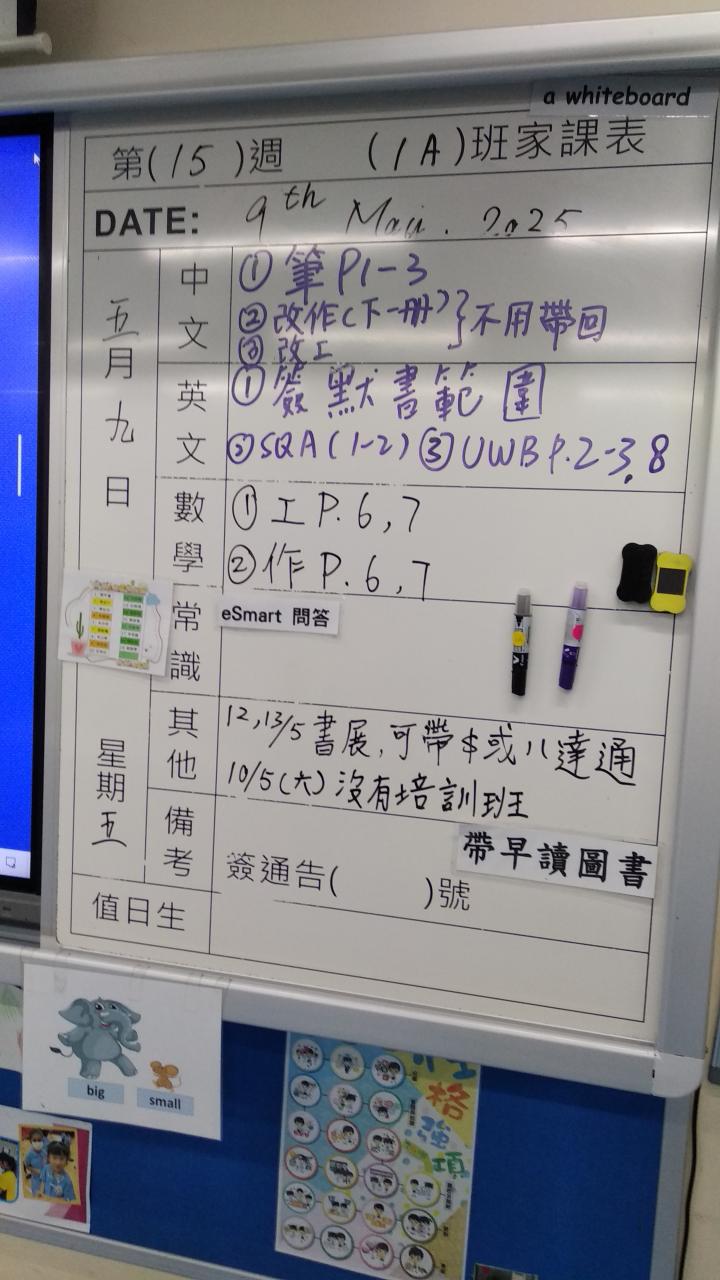 a whiteboard
第(15)週 (1A)班家課表
DATE: 9th May. 2025
五月九日
星期五
中文
① 筆P1-3
② 改作(下一冊) } 不用帶回
③ 改工
英文
① 簽默書範圍
② SQA (1-2) ③ UWB P.2-3,8
數學
① 工P.6,7
② 作P.6,7
常識
eSmart 問答
其他
12,13/5 書展,可帶$或八達通
10/5(六)沒有培訓班
備考
帶早讀圖書
簽通告( )號
值日生
big
small
格
強
項